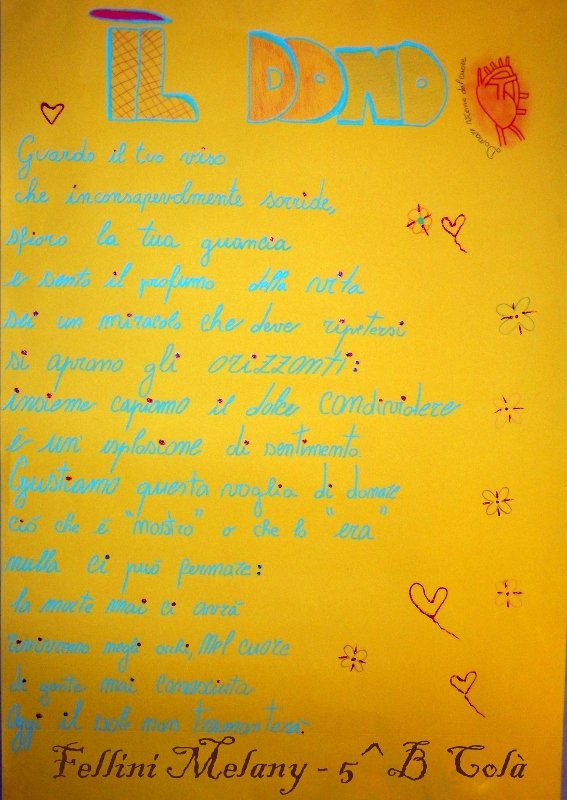 IL DONO
Donare viene dal cuore
Guardo il tuo viso
che inconsapevolmente sorride,
sfioro la tua guancia
e sento il profumo della vita
sei un miracolo che deve ripetersi
si aprono gli orizzonti:
insieme capiamo il dolce condividere
é un' esplosione di sentimento.
Gustiamo questa voglia di donare
ció che é "nostro" o che lo "era"
nulla ci puó fermare:
la morte mai ci avrá
rivivremo negli occhi, nel cuore
di gente mai conosciuta.
Oggi il sole non tramonterá.
Fellini Melany - 5^B Colà